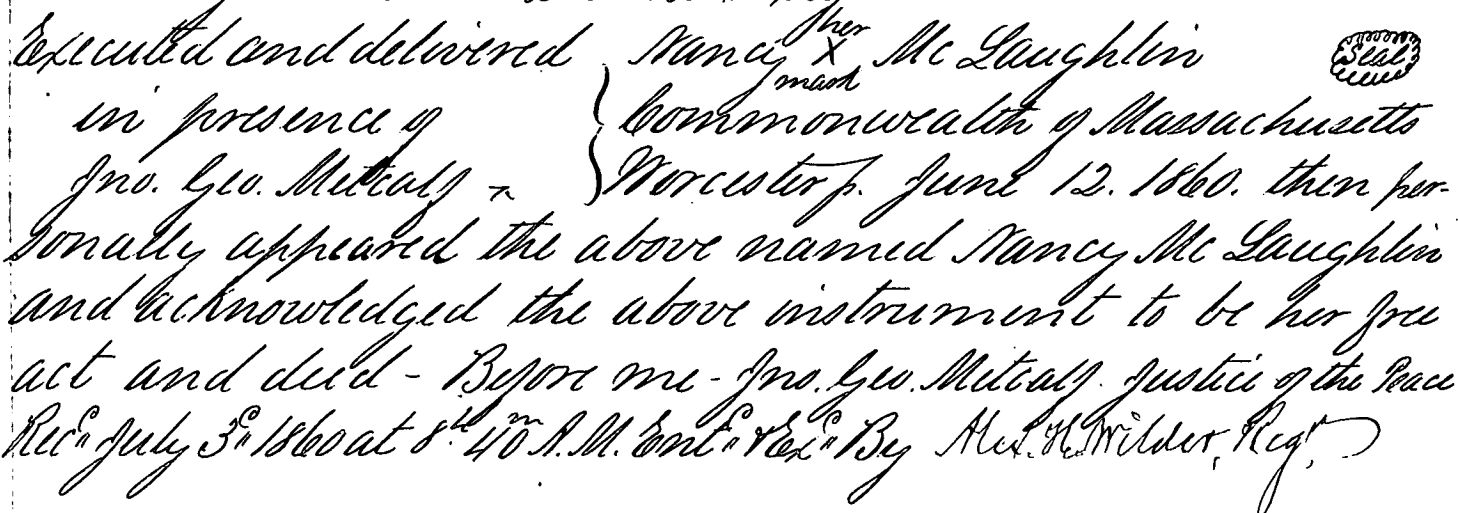 Executed and delivered Nancy her X mark Mc Laughlin Seal
in presence of } Commonwealth of Massachusetts
Jno. Geo. Metcalf } Worcester ss. June 12. 1860. then per-
sonally appeared the above named Nancy Mc Laughlin
and acknowledged the above instrument to be her free
act and deed - Before me - Jno. Geo. Metcalf. Justice of the Peace
Recd July 3d 1860 at 8h 40m A.M. Entd & Exd By Alex. H. Wilder, Regr.